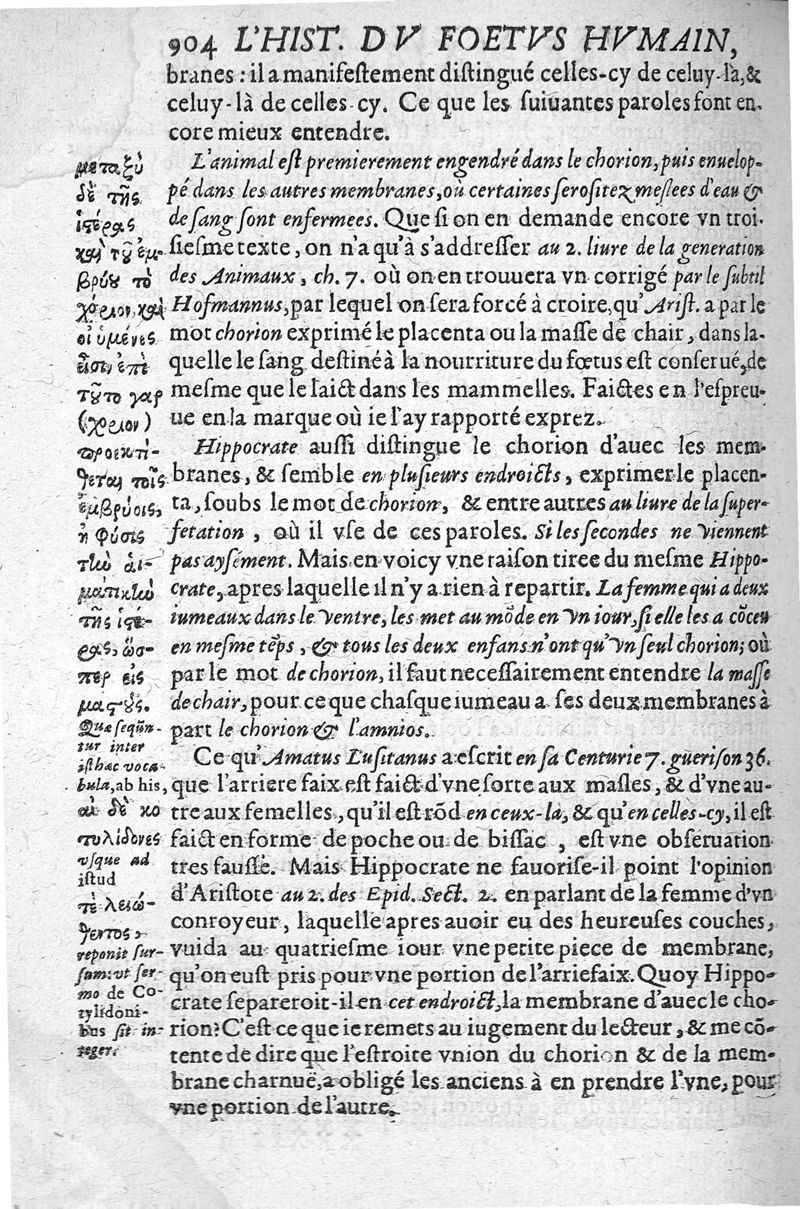 904 L'HIST. DV FOETVS HVMAIN,
branes : il a manifestement distingué celles-cy de celuy-là, &
celuy-là de celles-cy. Ce que les suiuantes paroles font en-
core mieux entendre.
L'animal est premierement engendré dans le chorion, puis enuelop-
pé dans les autres membranes, où certaines serositez meslees d'eau &
de sang sont enfermees. Que si on en demande encore vn troi-
siesme texte, on n'a qu'à s'addresser au 2. liure de la generation
des Animaux, ch. 7. où on en trouuera vn corrigé par le subtil
Hofmannus, par lequel on sera forcé à croire, qu'Arist. a par le
mot chorion exprimé le placenta ou la masse de chair, dans la-
quelle le sang destiné à la nourriture du fœtus est conserué, de
mesme que le laict dans les mammelles. Faictes en l'espreu-
ue en la marque où ie l'ay rapporté exprez.
Hippocrate aussi distingue le chorion d'auec les mem-
branes, & semble en plusieurs endroicts, exprimer le placen-
ta, soubs le mot de chorion, & entre autres au liure de la super-
fetation, où il vse de ces paroles. Si les secondes ne viennent
pas aysément. Mais en voicy vne raison tiree du mesme Hippo-
crate, apres laquelle il n'y a rien à repartir. La femme qui a deux
iumeaux dans le ventre, les met au mõde en vn iour, si elle les a cõceu
en mesme tẽps, & tous les deux enfans n'ont qu'vn seul chorion; où
par le mot de chorion, il faut necessairement entendre la masse
de chair, pour ce que chasque iumeau a ses deux membranes à
part le chorion & l'amnios.
Ce qu'Amatus Lusitanus a escrit en sa Centurie 7. guerison 36.
que l'arriere faix est faict d'vne sorte aux masles, & d'vne au-
tre aux femelles, qu'il est rõd en ceux-là, & qu'en celles-cy, il est
faict en forme de poche ou de bissac, est vne obseruation
tres fausse. Mais Hippocrate ne fauorise-il point l'opinion
d'Aristote au 2. des Epid. Sect. 2. en parlant de la femme d'vn
conroyeur, laquelle apres auoir eu des heureuses couches,
vuida au quatriesme iour vne petite piece de membrane,
qu'on eust pris pour vne portion de l'arriefaix. Quoy Hippo-
crate separeroit-il en cet endroict, la membrane d'auec le cho-
rion? C'est ce que ie remets au iugement du lecteur, & me cõ-
tente de dire que l'estroite vnion du chorion & de la mem-
brane charnuë, a obligé les anciens à en prendre l'vne, pour
vne portion de l'autre.
μεταξὺ
δὲ τῆς
ὑστέρας
καὶ τοῦ ἐμ-
βρύου τὸ
χόριον, καὶ
οἱ ὑμένες
εἰσιν ἐπὶ
τοῦτο γαρ
(χοριον)
προεκτί-
θεται τοῖς
ἐμβρύοις,
ἡ φύσις
τὴν αἱ-
ματικὴν
τῆς ὑστέ-
ρας, ὥσ-
περ εἰς
μαστούς.
Quæ sequũn-
tur inter
isthæc voca
bula, ab his,
αἱ δὲ κο
τυλιδόνες
vsque ad
istud
τὲ λειω-
θέντος,
reponit sur-
sum: vt ser-
mo de Co-
tylidoni-
bus sit in-
teger.